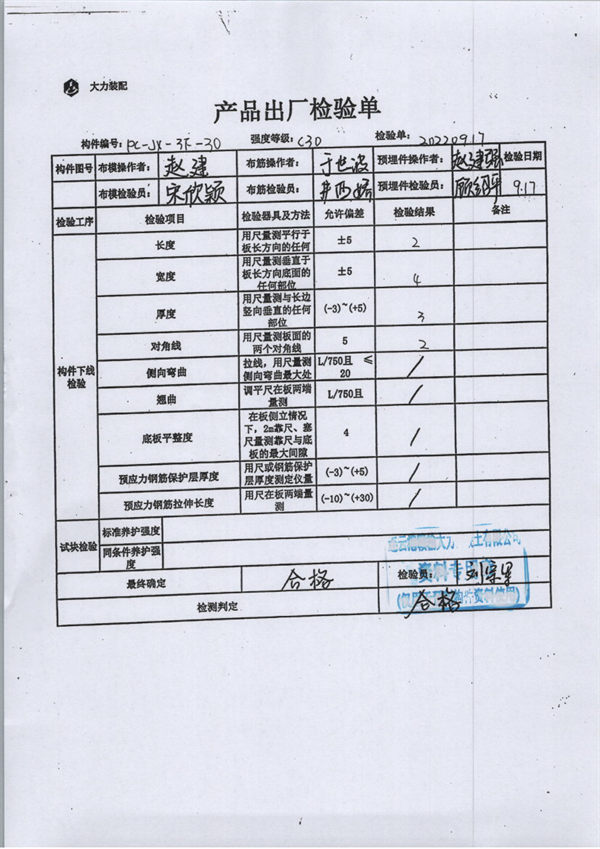 大力装配
产品出厂检验单
构件编号: PC-JX-3F-30 强度等级: C30 检验单: 20220917
构件图号 布模操作者: 赵建 布筋操作者: 于世波 预埋件操作者: 赵建强 检验日期
布模检验员: 宋欣颖 布筋检验员: 预埋件检验员: 9.17
检验工序 检验项目 检验器具及方法 允许偏差 检验结果 备注
构件下线检验
长度 用尺量测平行于板长方向的任何 ±5 2
宽度 用尺量测垂直于板长方向底面的任何部位 ±5 4
厚度 用尺量测与长边竖向垂直的任何部位 (-3)~(+5) 3
对角线 用尺量测板面的两个对角线 5 2
侧向弯曲 拉线，用尺量测侧向弯曲最大处 L/750且 ≤20 /
翘曲 调平尺在板两端量测 L/750且 /
底板平整度 在板侧立情况下，2m靠尺、塞尺量测靠尺与底板的最大间隙 4 /
预应力钢筋保护层厚度 用尺或钢筋保护层厚度测定仪量 (-3)~(+5) /
预应力钢筋拉伸长度 用尺在板两端量测 (-10)~(+30) /
试块检验 标准养护强度
同条件养护强度
最终确定 合格 检验员:
检测判定 合格
资料专用